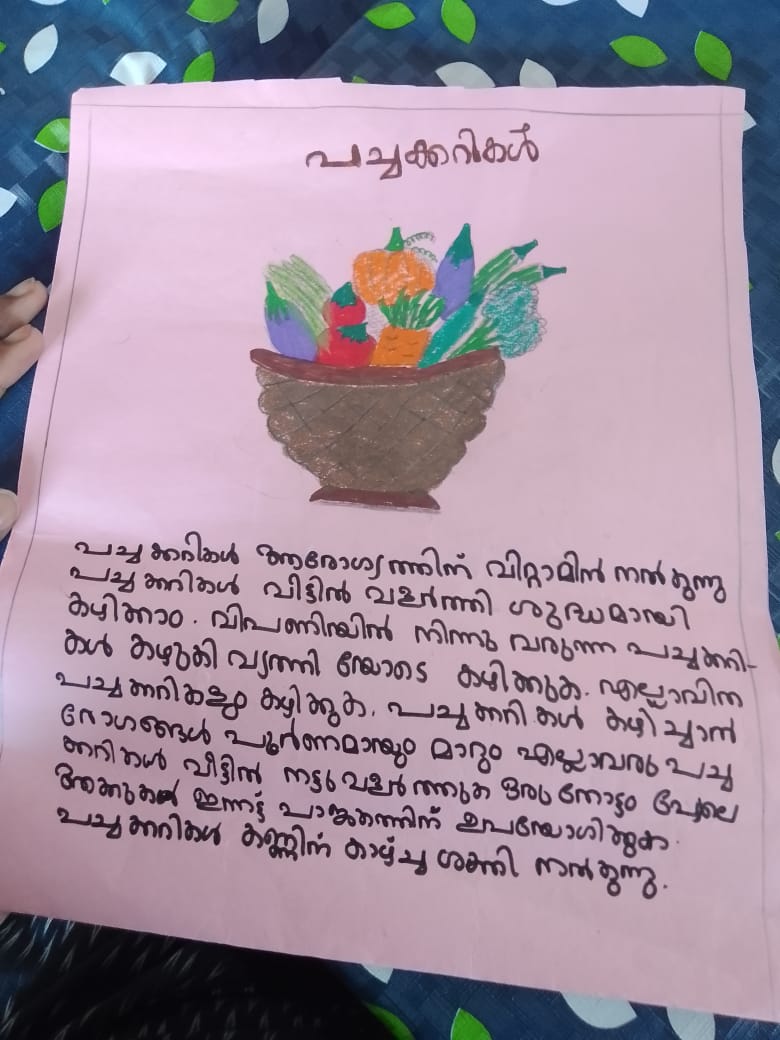 പച്ചക്കറികൾ
പച്ചക്കറികൾ ആരോഗ്യത്തിന് വിറ്റാമിൻ നൽകുന്നു
പച്ചക്കറികൾ വീട്ടിൽ വളർത്തി ശുദ്ധമായി
കഴിക്കാം. വിപണിയിൽ നിന്നു വരുന്ന പച്ചക്കറി-
കൾ കഴുകി വൃത്തി യോടെ കഴിക്കുക. എല്ലാവിത
പച്ചക്കറികളും കഴിക്കുക. പച്ചക്കറികൾ കഴിച്ചാൽ
രോഗങ്ങൾ പൂർണമായും മാറും എല്ലാവരു പച്ച
ക്കറികൾ വീട്ടിൽ നട്ടു വളർത്തുക ഒരു തോട്ടം പോലെ
ഇന്നട്ട് പാചകത്തിന് ഉപയോഗിക്കുക.
പച്ചക്കറികൾ കണ്ണിന് കാഴ്ച ശക്തി നൽകുന്നു.